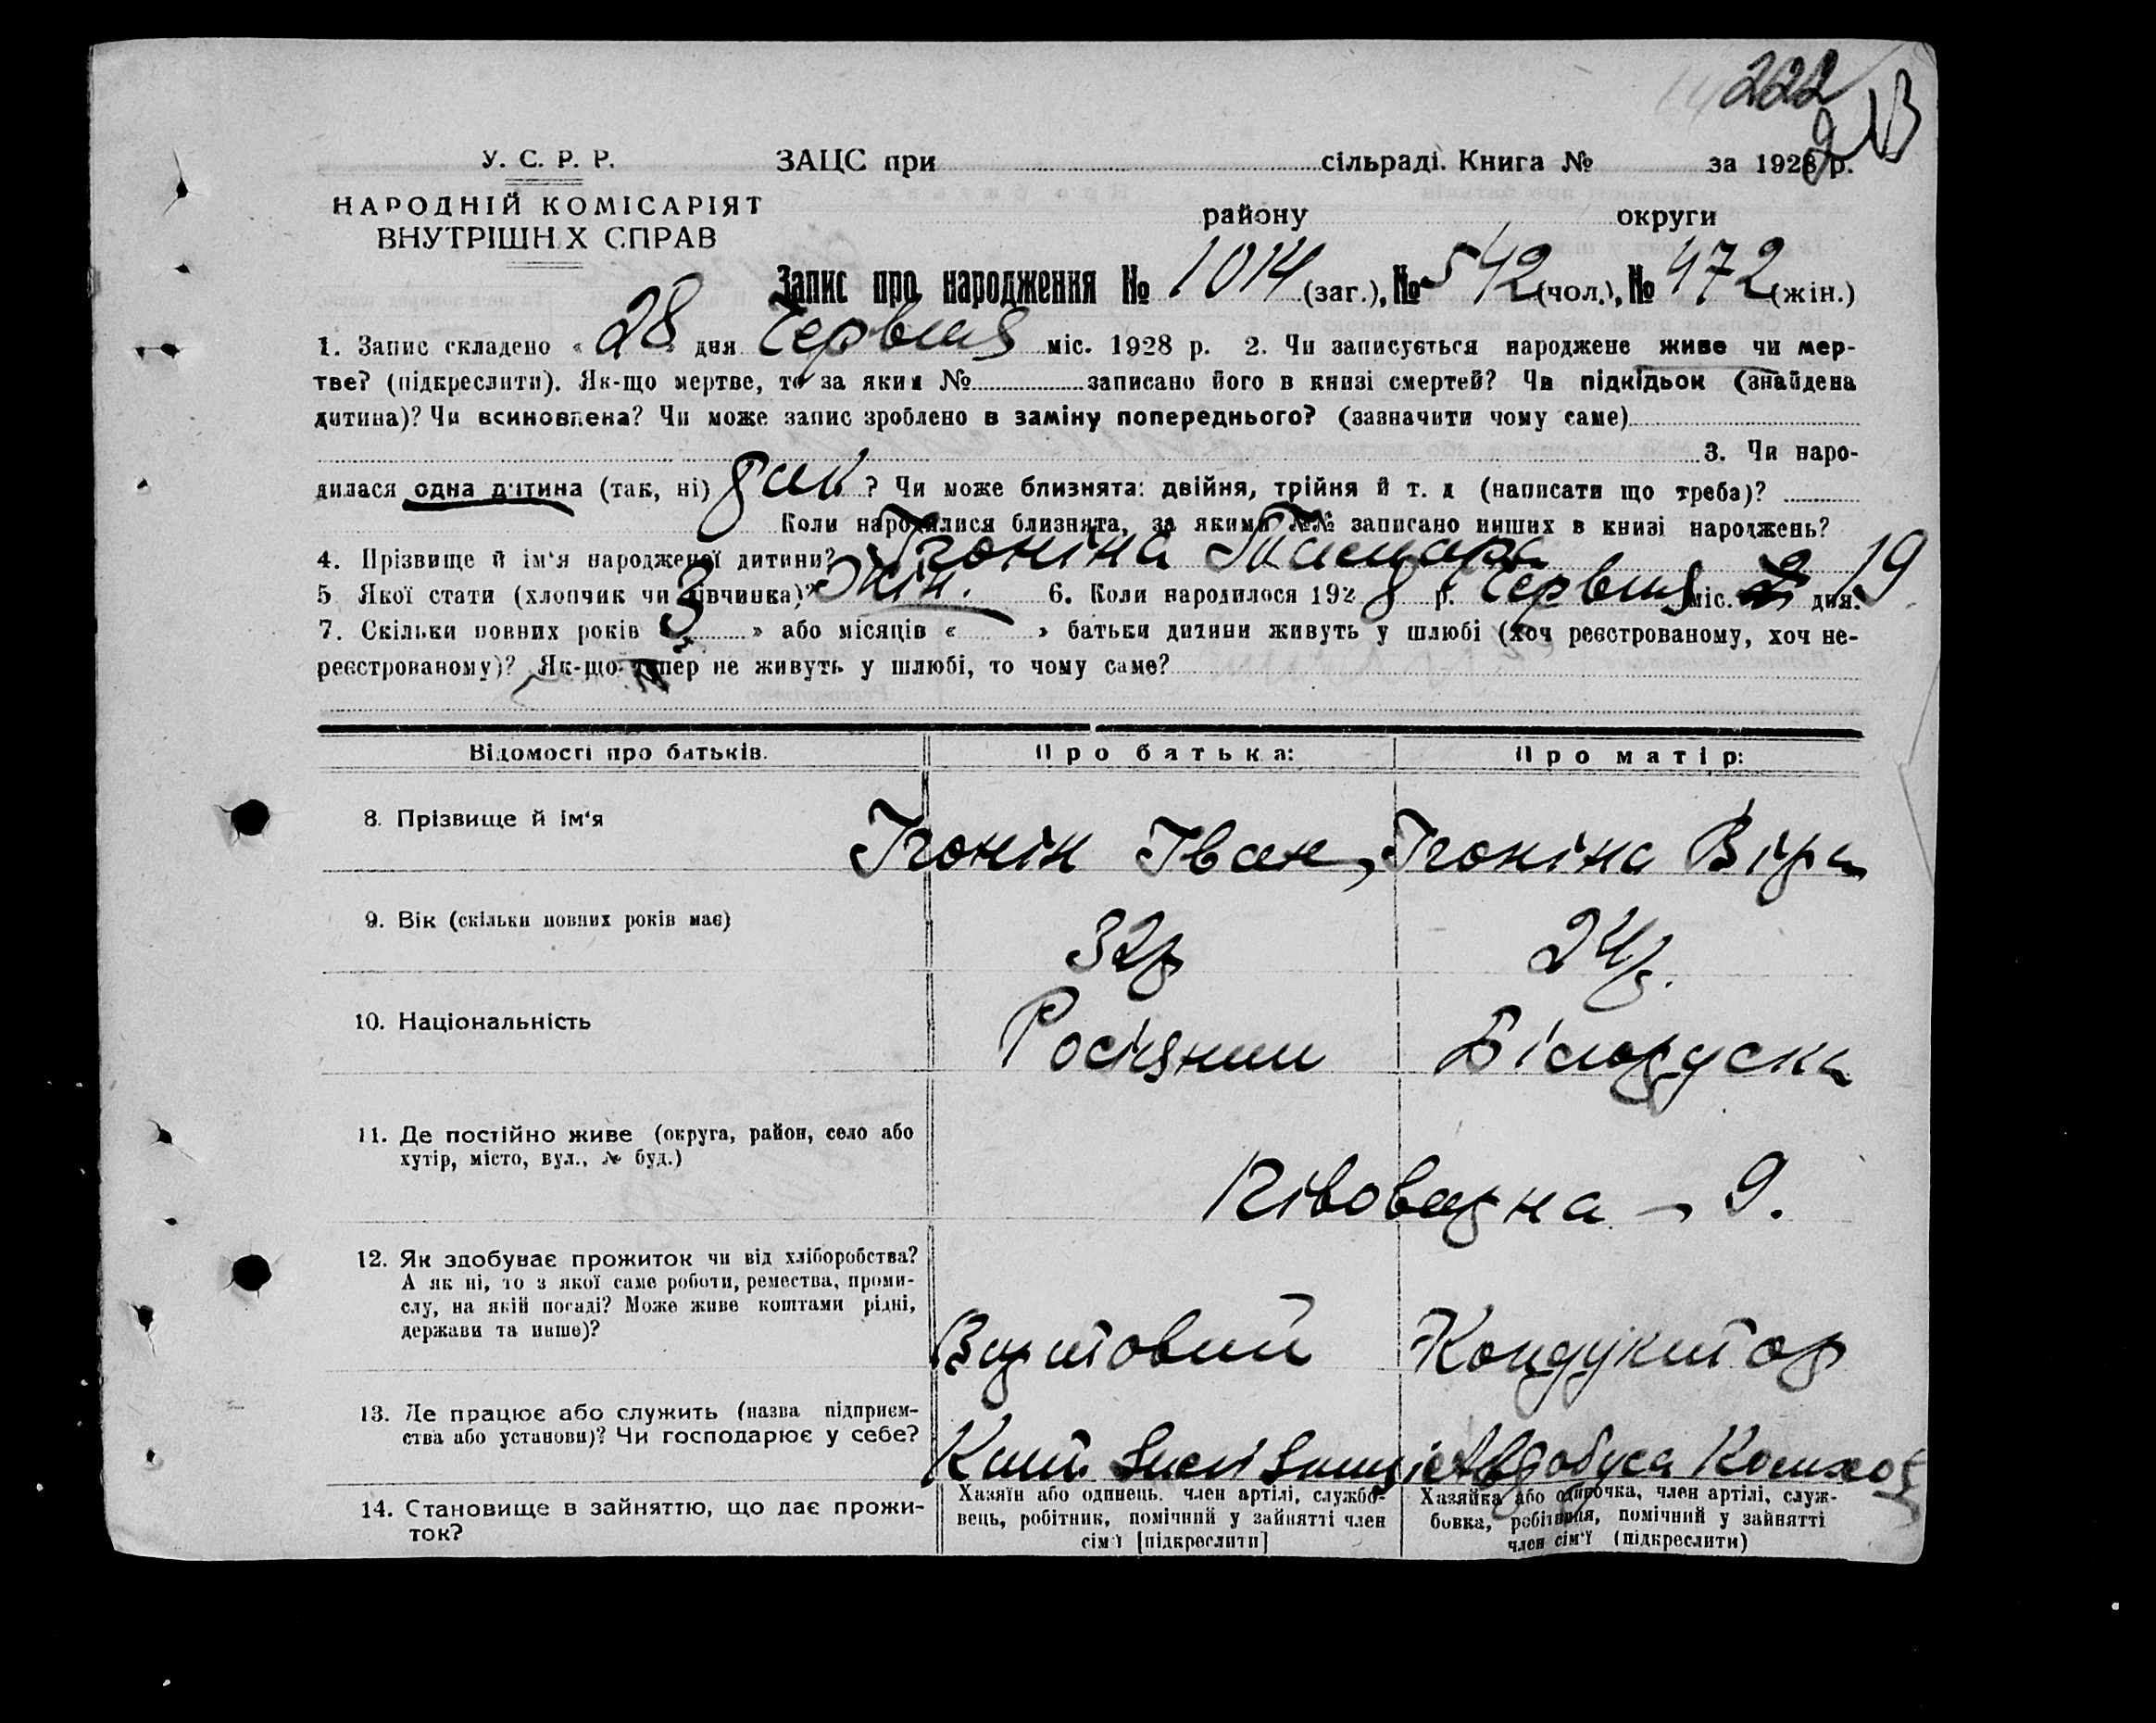 222
У. С. Р. Р.
ЗАЦС при сільраді. Книга № за 1928 р.
НАРОДНІЙ КОМІСАРІЯТ
ВНУТРІШН Х СПРАВ
району округи
Запис про народження № 1014 (заг.), № 542 (чол.), № 472 (жін.)
1. Запис складено « 28 » дня Червня міс. 1928 р. 2. Чи записується народжене живе чи мер-
тве? (підкреслити). Як-що мертве, то за яким № записано його в книзі смертей? Чи підкідьок (знайдена
дитина)? Чи всиновлена? Чи може запис зроблено в заміну попереднього? (зазначити чому саме)
3. Чи наро-
дилася одна дитина (так, ні) так ? Чи може близнята: двійня, трійня й т. д (написати що треба)?
Коли народилися близнята, за якими №№ записано инших в книзі народжень?
4. Прізвище й ім'я народженої дитини? Ігоніна Тамара
5 Якої стати (хлопчик чи дівчинка)? жін. 6. Коли народилося 192 8 р. Червня міс. 19 дня.
7. Скільки повних років « 3 » або місяців « » батьки дитини живуть у шлюбі (хоч реєстрованому, хоч не-
реєстрованому)? Як-що тепер не живуть у шлюбі, то чому саме?
Відомості про батьків. Про батька: Про матір:
8. Прізвище й ім'я Ігонін Іван Ігоніна Віра
9. Вік (скільки повних років має) 32р 24р.
10. Національність Росіянин Білоруска
11. Де постійно живе (округа, район, село або
хутір, місто, вул., № буд.)
Півоварна - 9.
12. Як здобуває прожиток чи від хліборобства?
А як ні, то з якої саме роботи, ремества, проми-
слу, на якій посаді? Може живе коштами рідні,
держави та инше)?
Вартовий Кондуктор
13. Де працює або служить (назва підприєм-
ства або установи)? Чи господарює у себе?
Автобуса
14. Становище в зайняттю, що дає прожи-
ток?
Хазяїн або одинець. член артілі, службо-
вець, робітник, помічний у зайнятті член
сім'ї [підкреслити]
Хазяйка або одиночка, член артілі, служ-
бовка, робітниця, помічний у зайнятті
член сім'ї (підкреслити)